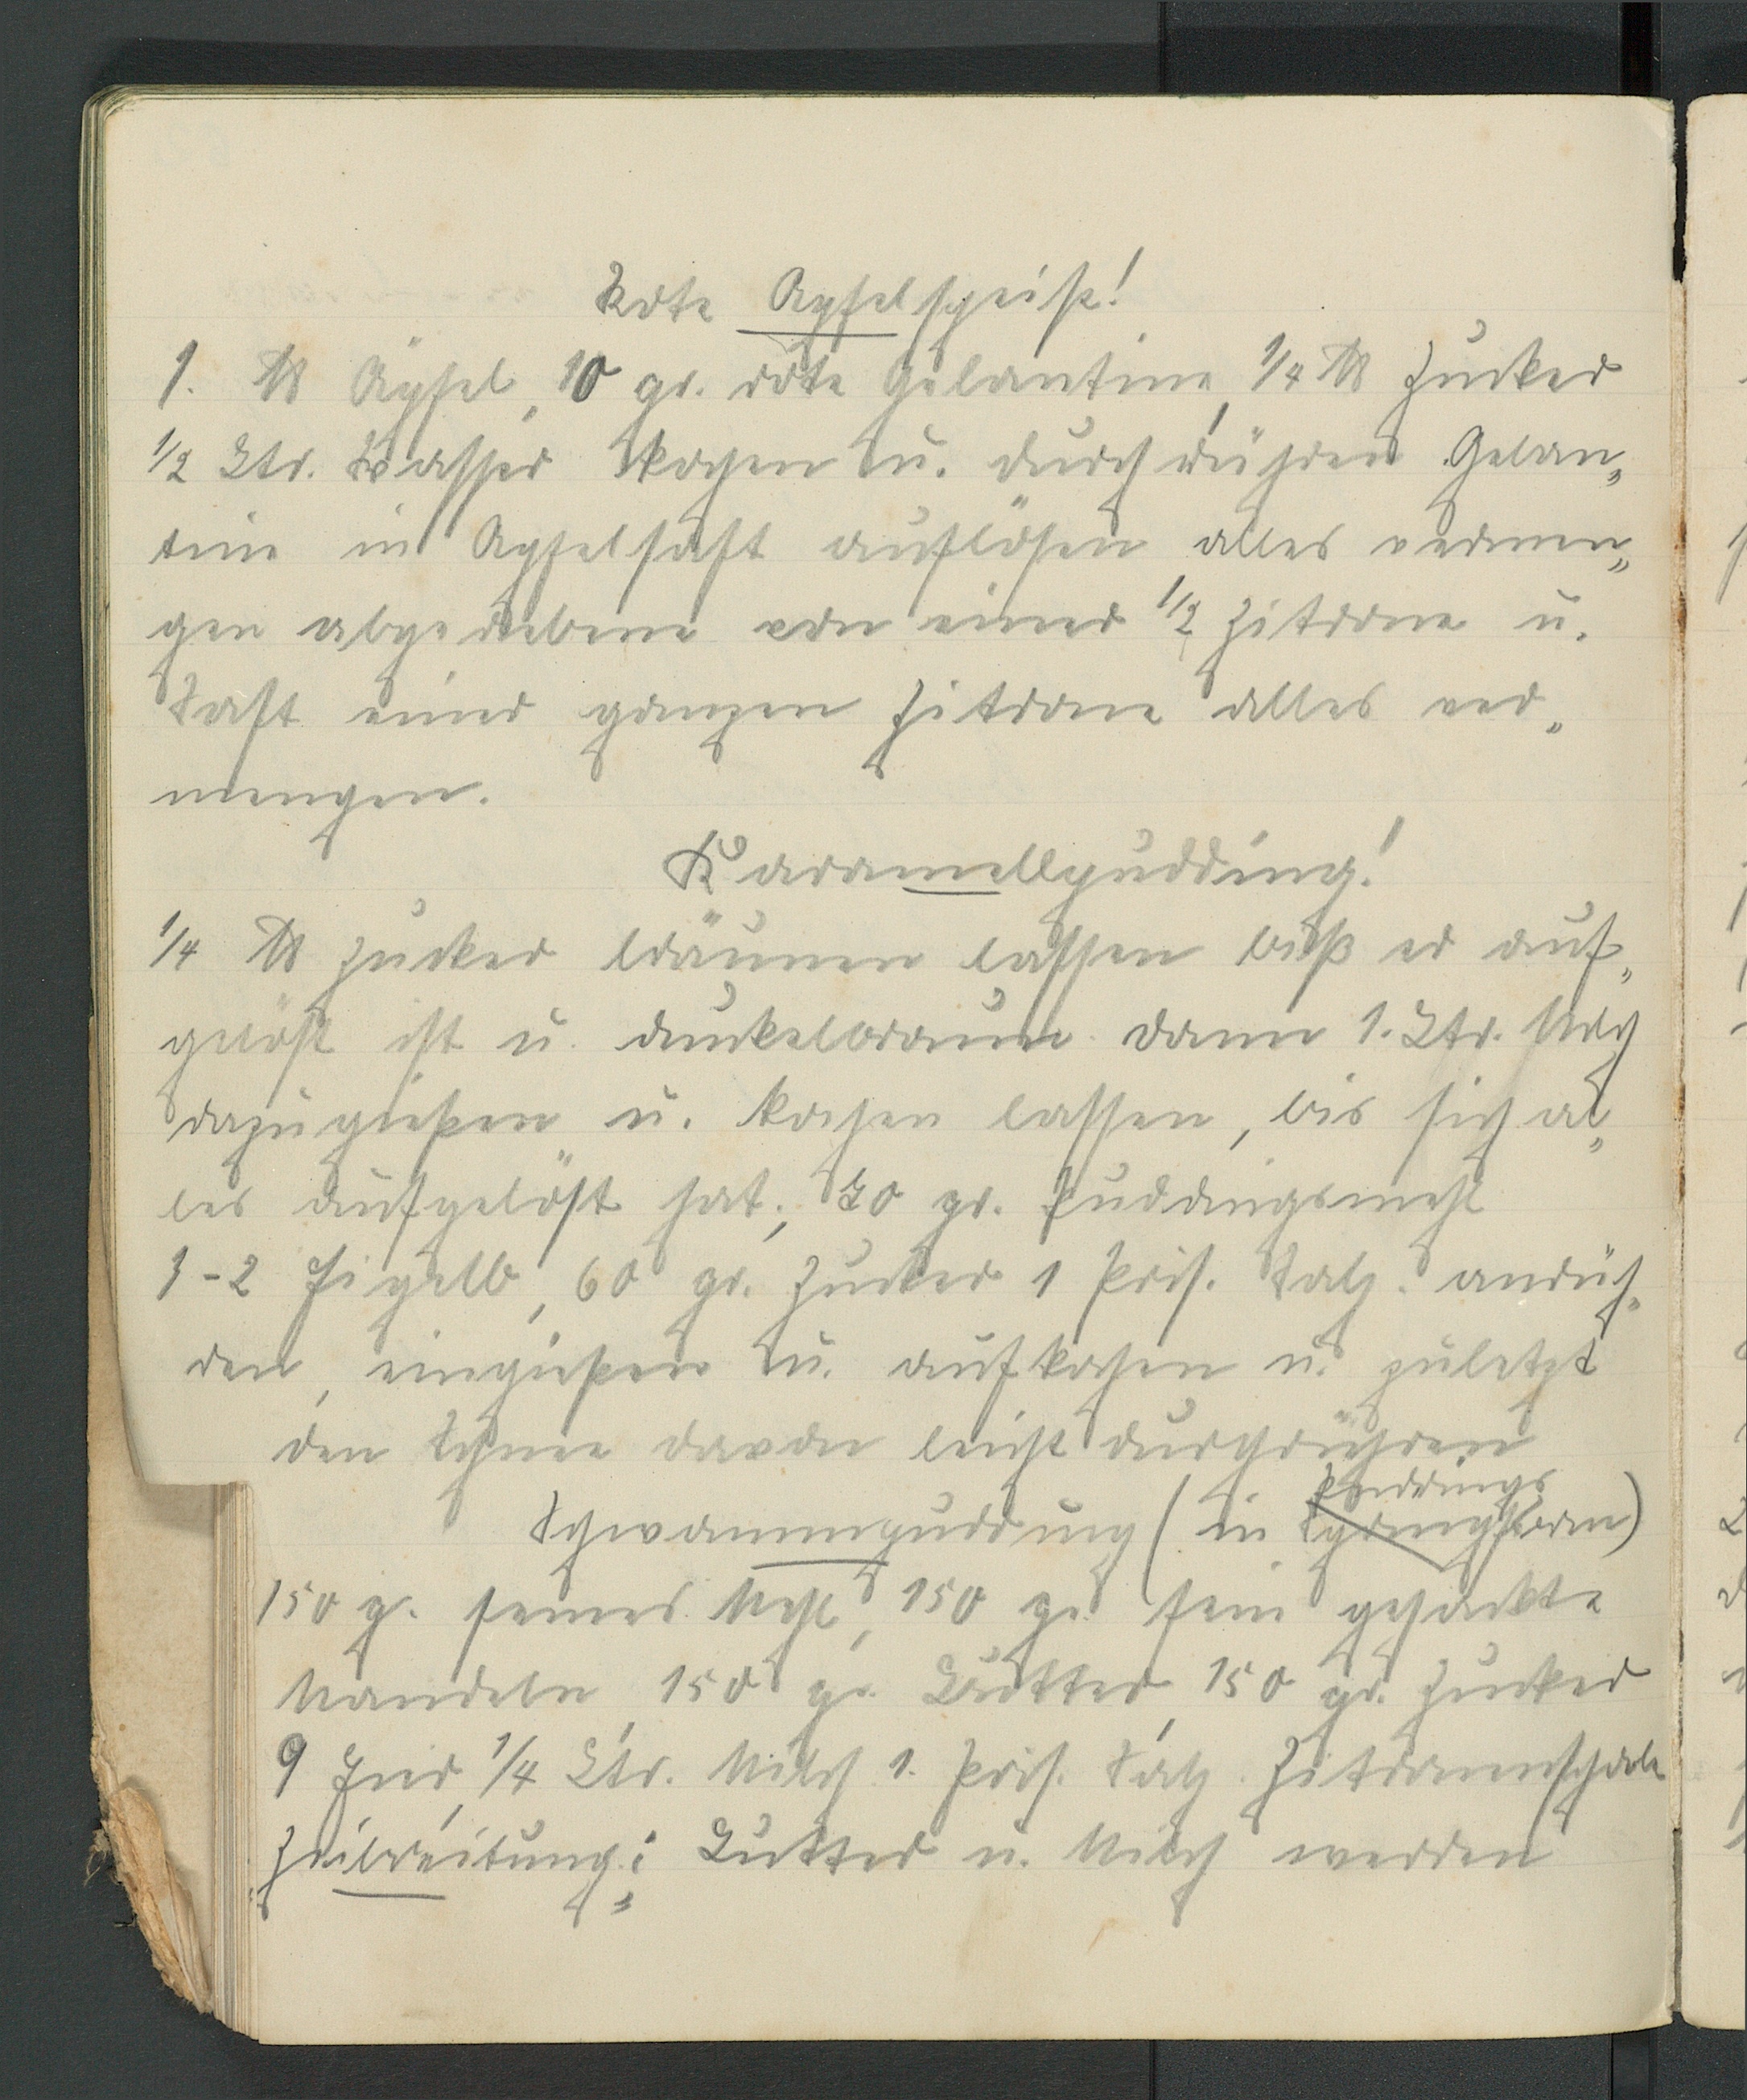 Rote Apfelspeise!
1. ℔ Äpfel, 10 gr. rote Gelantine, 1/4 ℔ Zucker
1/2 Ltr. Wasser kochen u. durchrühren Gelan„
tine in Apfelsaft auflösen alles vermen„
gen abgeriebene von einer 1/2 Zitrone u.
Saft einer ganzen Zitrone alles ver„
mengen.
Karamellpudding!
1/4 ℔ Zucker bräunen lassen biß er auf„
gelößt ist u. dunkelbraun. dann 1. Ltr. Milch
dazugießen u. kochen lassen, bis sich al„
les aufgelöst hat, 70 gr. Puddingsmehl
1-2 Eigelb, 60 gr. Zucker 1 Pris. Salz. anrüh„
ren, eingießen u. aufkochen u. zuletzt
den Schnee davon leicht durchrühren
Puddings
Schwammpudding (in Springform)
150 g. feines Mehl, 150 gr. fein gehackte
Mandeln, 150 gr. Butter, 150 gr. Zucker
9 Eier, 1/4 Ltr. Milch 1. Pris. Salz Zitronenschale
Zubereitung: Butter u. Milch werden